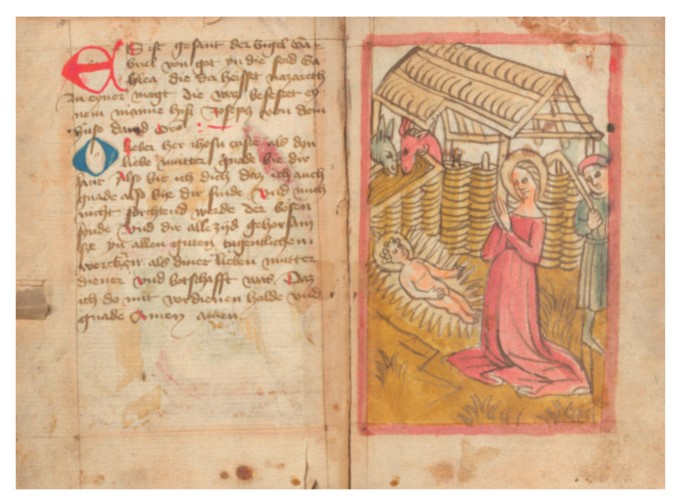 ES ist gesant der Engel Ga
briel von got yn die stad Ga
lilea die do heisset nazareth
zu eyner magt die was
nem manne hiß Joseph von dem
huse dauid
O lieber her ihesu als den
liebe mutter gnade bie dir
fant Also bit ich dich daz ich auch
gnade also bie dir finde vnd mich
nicht forchtend werde der bosen
sonde vnd dir allezyd gehorsam
sye yn allen guten tugentlichenn
wercken als diner lieben mutter
diener vnd botschafft was Daz
ich do mit verdienen halde vnd
gnade Amen amen